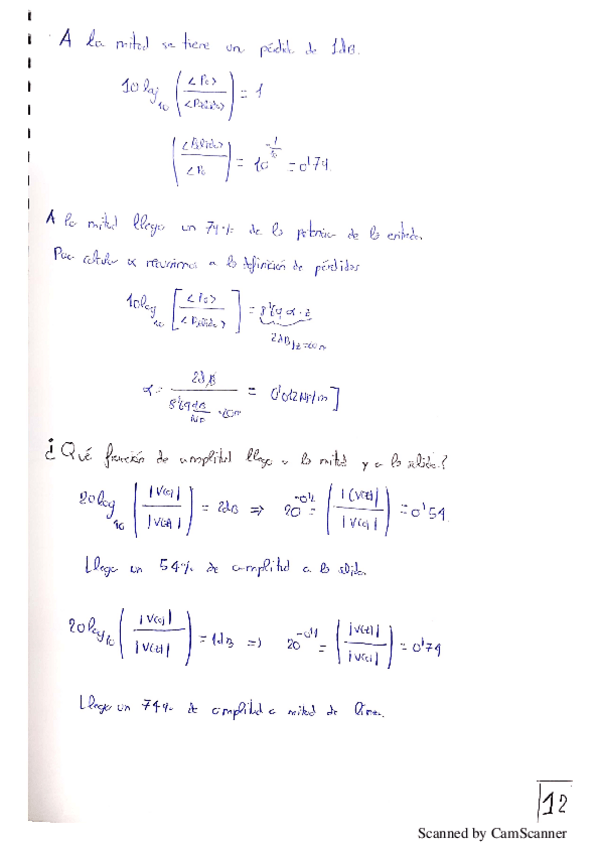 A la mitad se tiene un pérdida de 1dB.
10 log₁₀ (<P₀> / <Psalida>) = 1
(<Psalida> / <P₀) = 10^(-1/10) = 0'79
A la mitad llega un 79% de la potencia de la entrada.
Para calcular α recurrimos a la definición de pérdidas
10log₁₀ [<P₀> / <Psalida>] = 8'69 α · z
2dB|z=20m
α = 2dB / (8'69 dB/Np · 20m) = 0'012 Np/m]
¿Qué fracción de amplitud llega a la mitad y a la salida?
20log₁₀ (|V(0)| / |V(z)|) = 2dB => 20^(-0'2) = (|V(z)| / |V(0)|) = 0'54
Llega un 54% de amplitud a la salida.
20log₁₀ (|V(0)| / |V(z)|) = 1dB => 20^(-0'1) = (|V(z)| / |V(0)|) = 0'74
Llega un 74% de amplitud a mitad de línea.
12
Scanned by CamScanner